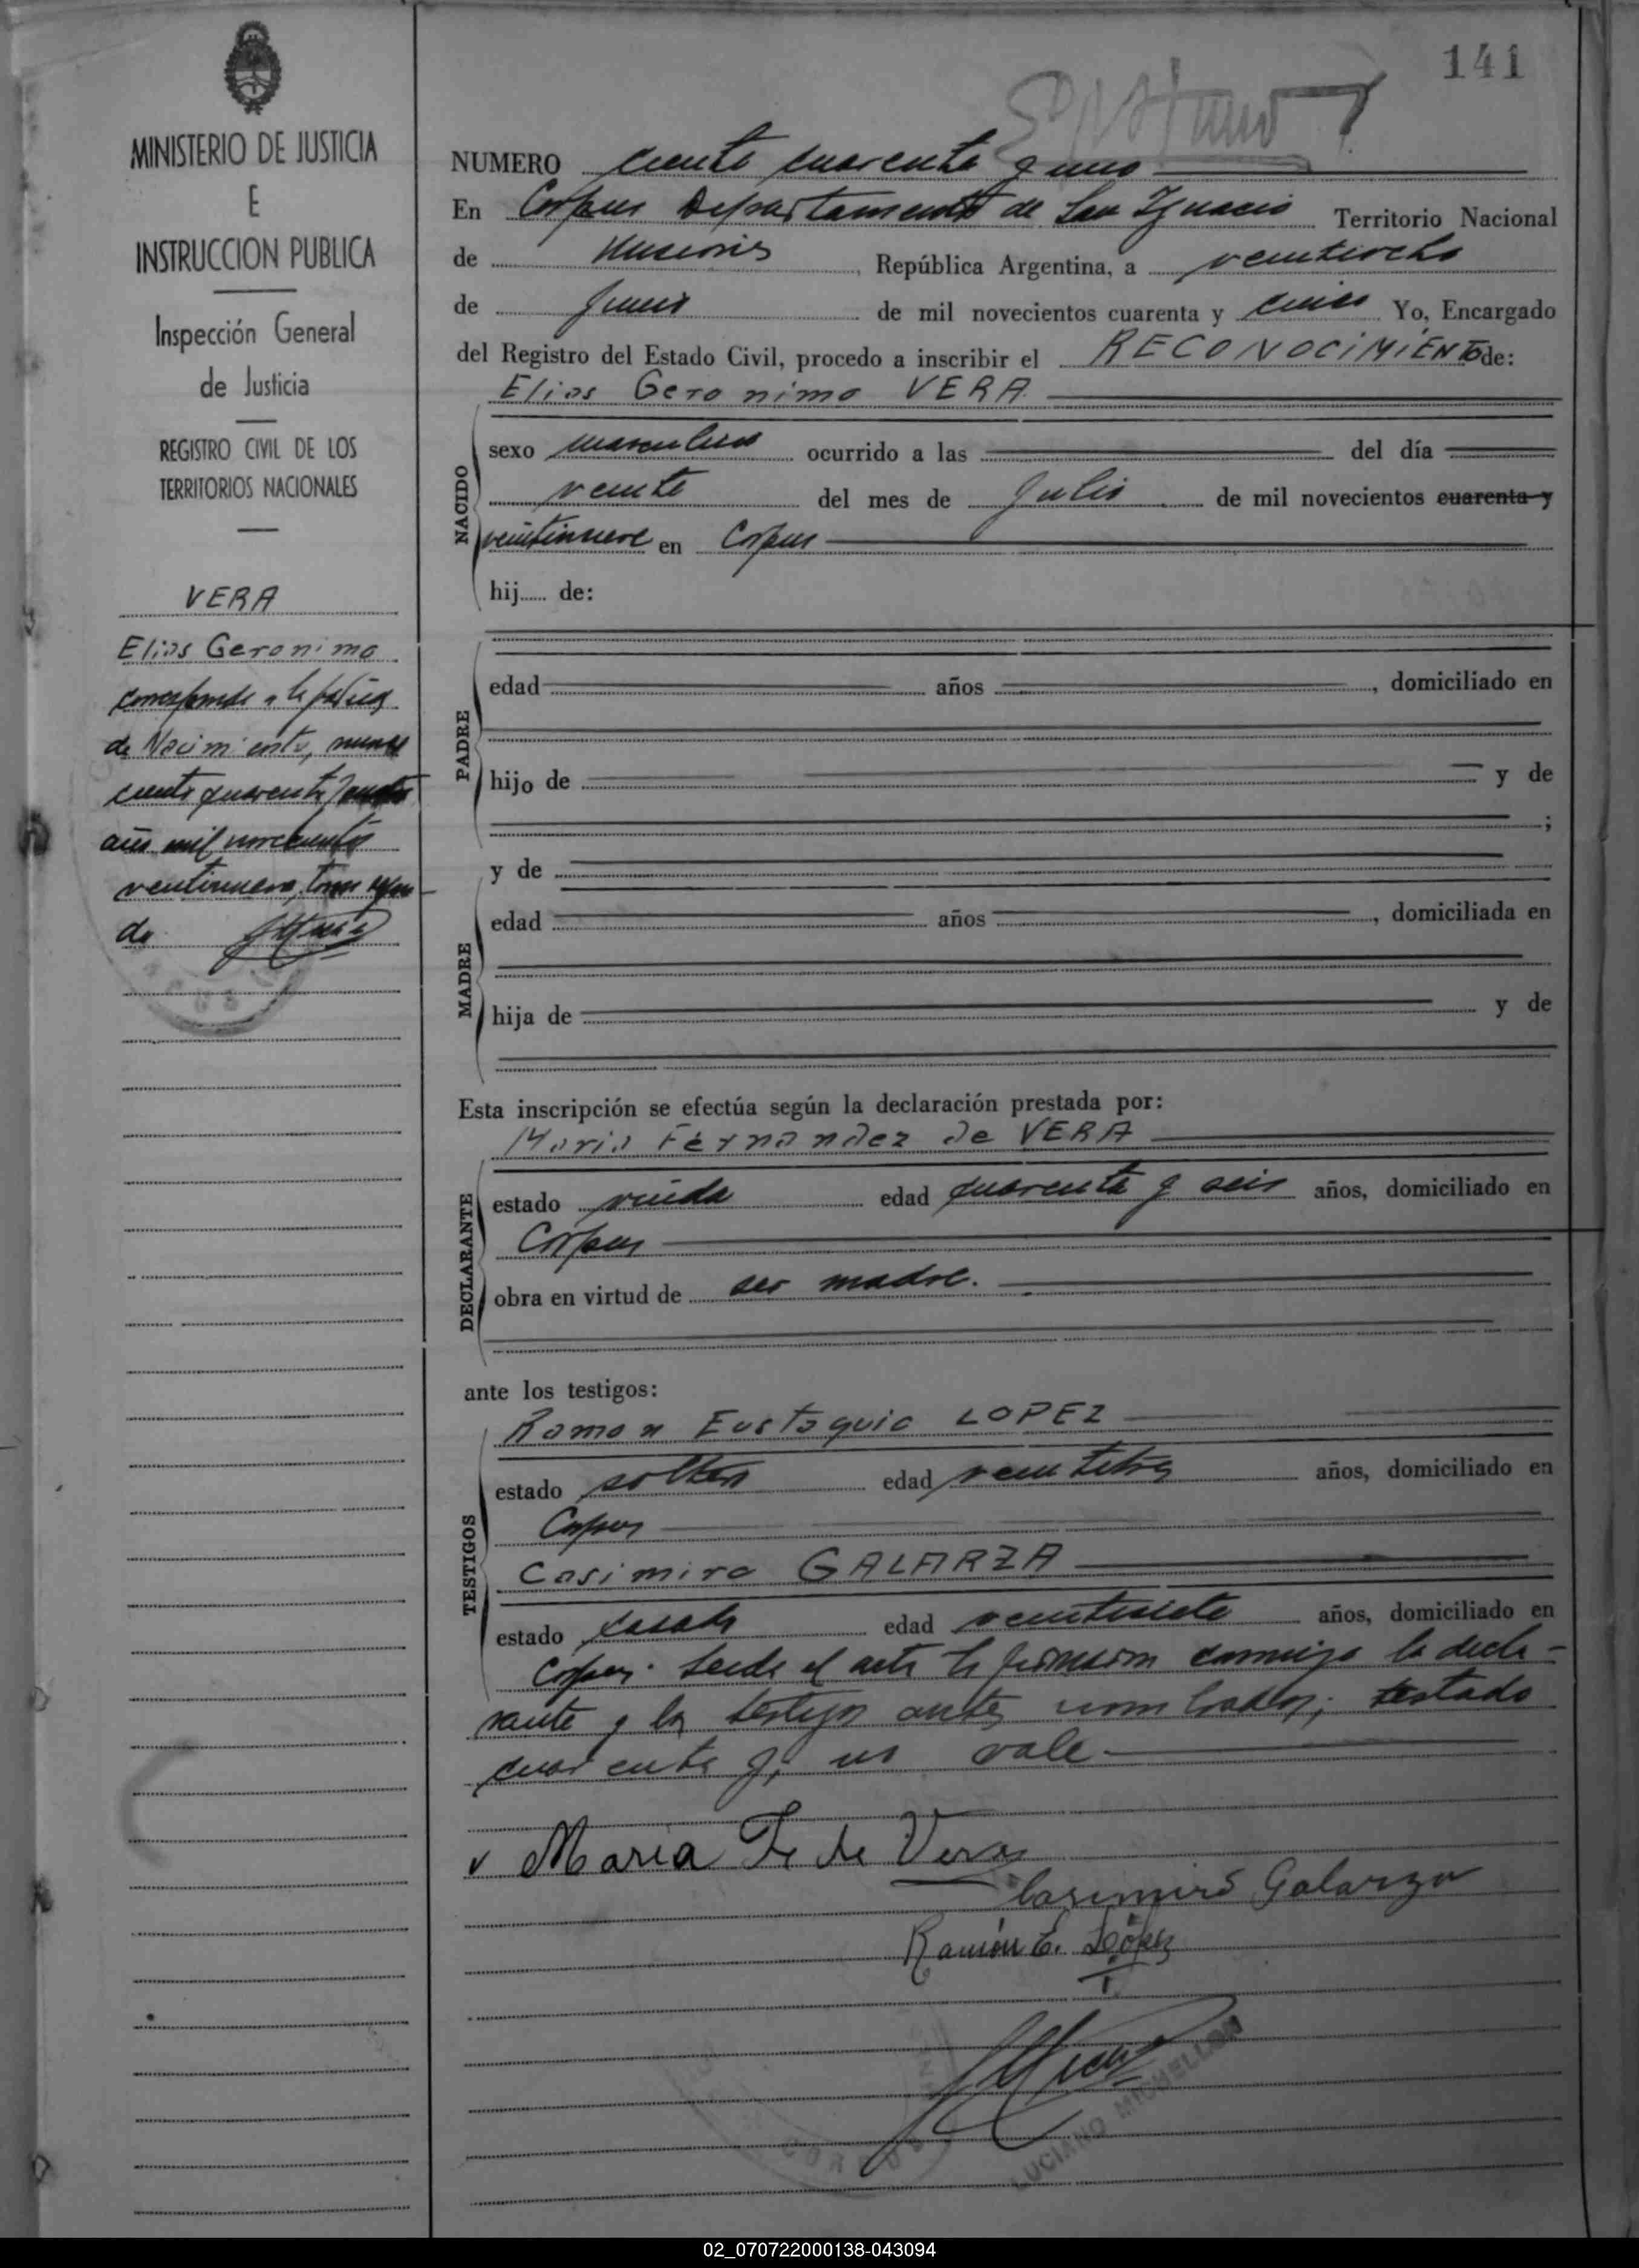 141
MINISTERIO DE JUSTICIA
E
INSTRUCCION PUBLICA
Inspección General
de Justicia
REGISTRO CIVIL DE LOS
TERRITORIOS NACIONALES
VERA
Elias Geronimo
corresponde a la
de Nacimiento,
ciento cuarenta y
año mil novecientos
de
NUMERO ciento cuarenta y uno
En Corpus Departamento de San Ignacio Territorio Nacional
de Misiones, República Argentina, a veintiocho
de Junio de mil novecientos cuarenta y cinco Yo, Encargado
del Registro del Estado Civil, procedo a inscribir el RECONOCIMIENTO de:
Elias Geronimo VERA
NACIDO
sexo masculino ocurrido a las del día
veinte del mes de Julio de mil novecientos cuarenta y
veintinueve en Corpus
hij..... de:
PADRE
edad años , domiciliado en
hijo de y de
;
y de
MADRE
edad años , domiciliada en
hija de y de
Esta inscripción se efectúa según la declaración prestada por:
Maria Fernandez de VERA
DECLARANTE
estado viuda edad cuarenta y seis años, domiciliado en
Corpus
obra en virtud de ser madre.
ante los testigos:
Ramon Eustaquio LOPEZ
TESTIGOS
estado soltero edad años, domiciliado en
Corpus
Casimiro GALARZA
estado casado edad veintisiete años, domiciliado en
Corpus. Leida el acta la firmaron conmigo la decla-
rante y los testigos antes nombrados; testado
cuarenta y, no vale
Maria F. de Vera
Casimiro Galarza
Ramón E. López
LUCIANO MICHELLON
02_070722000138-043094